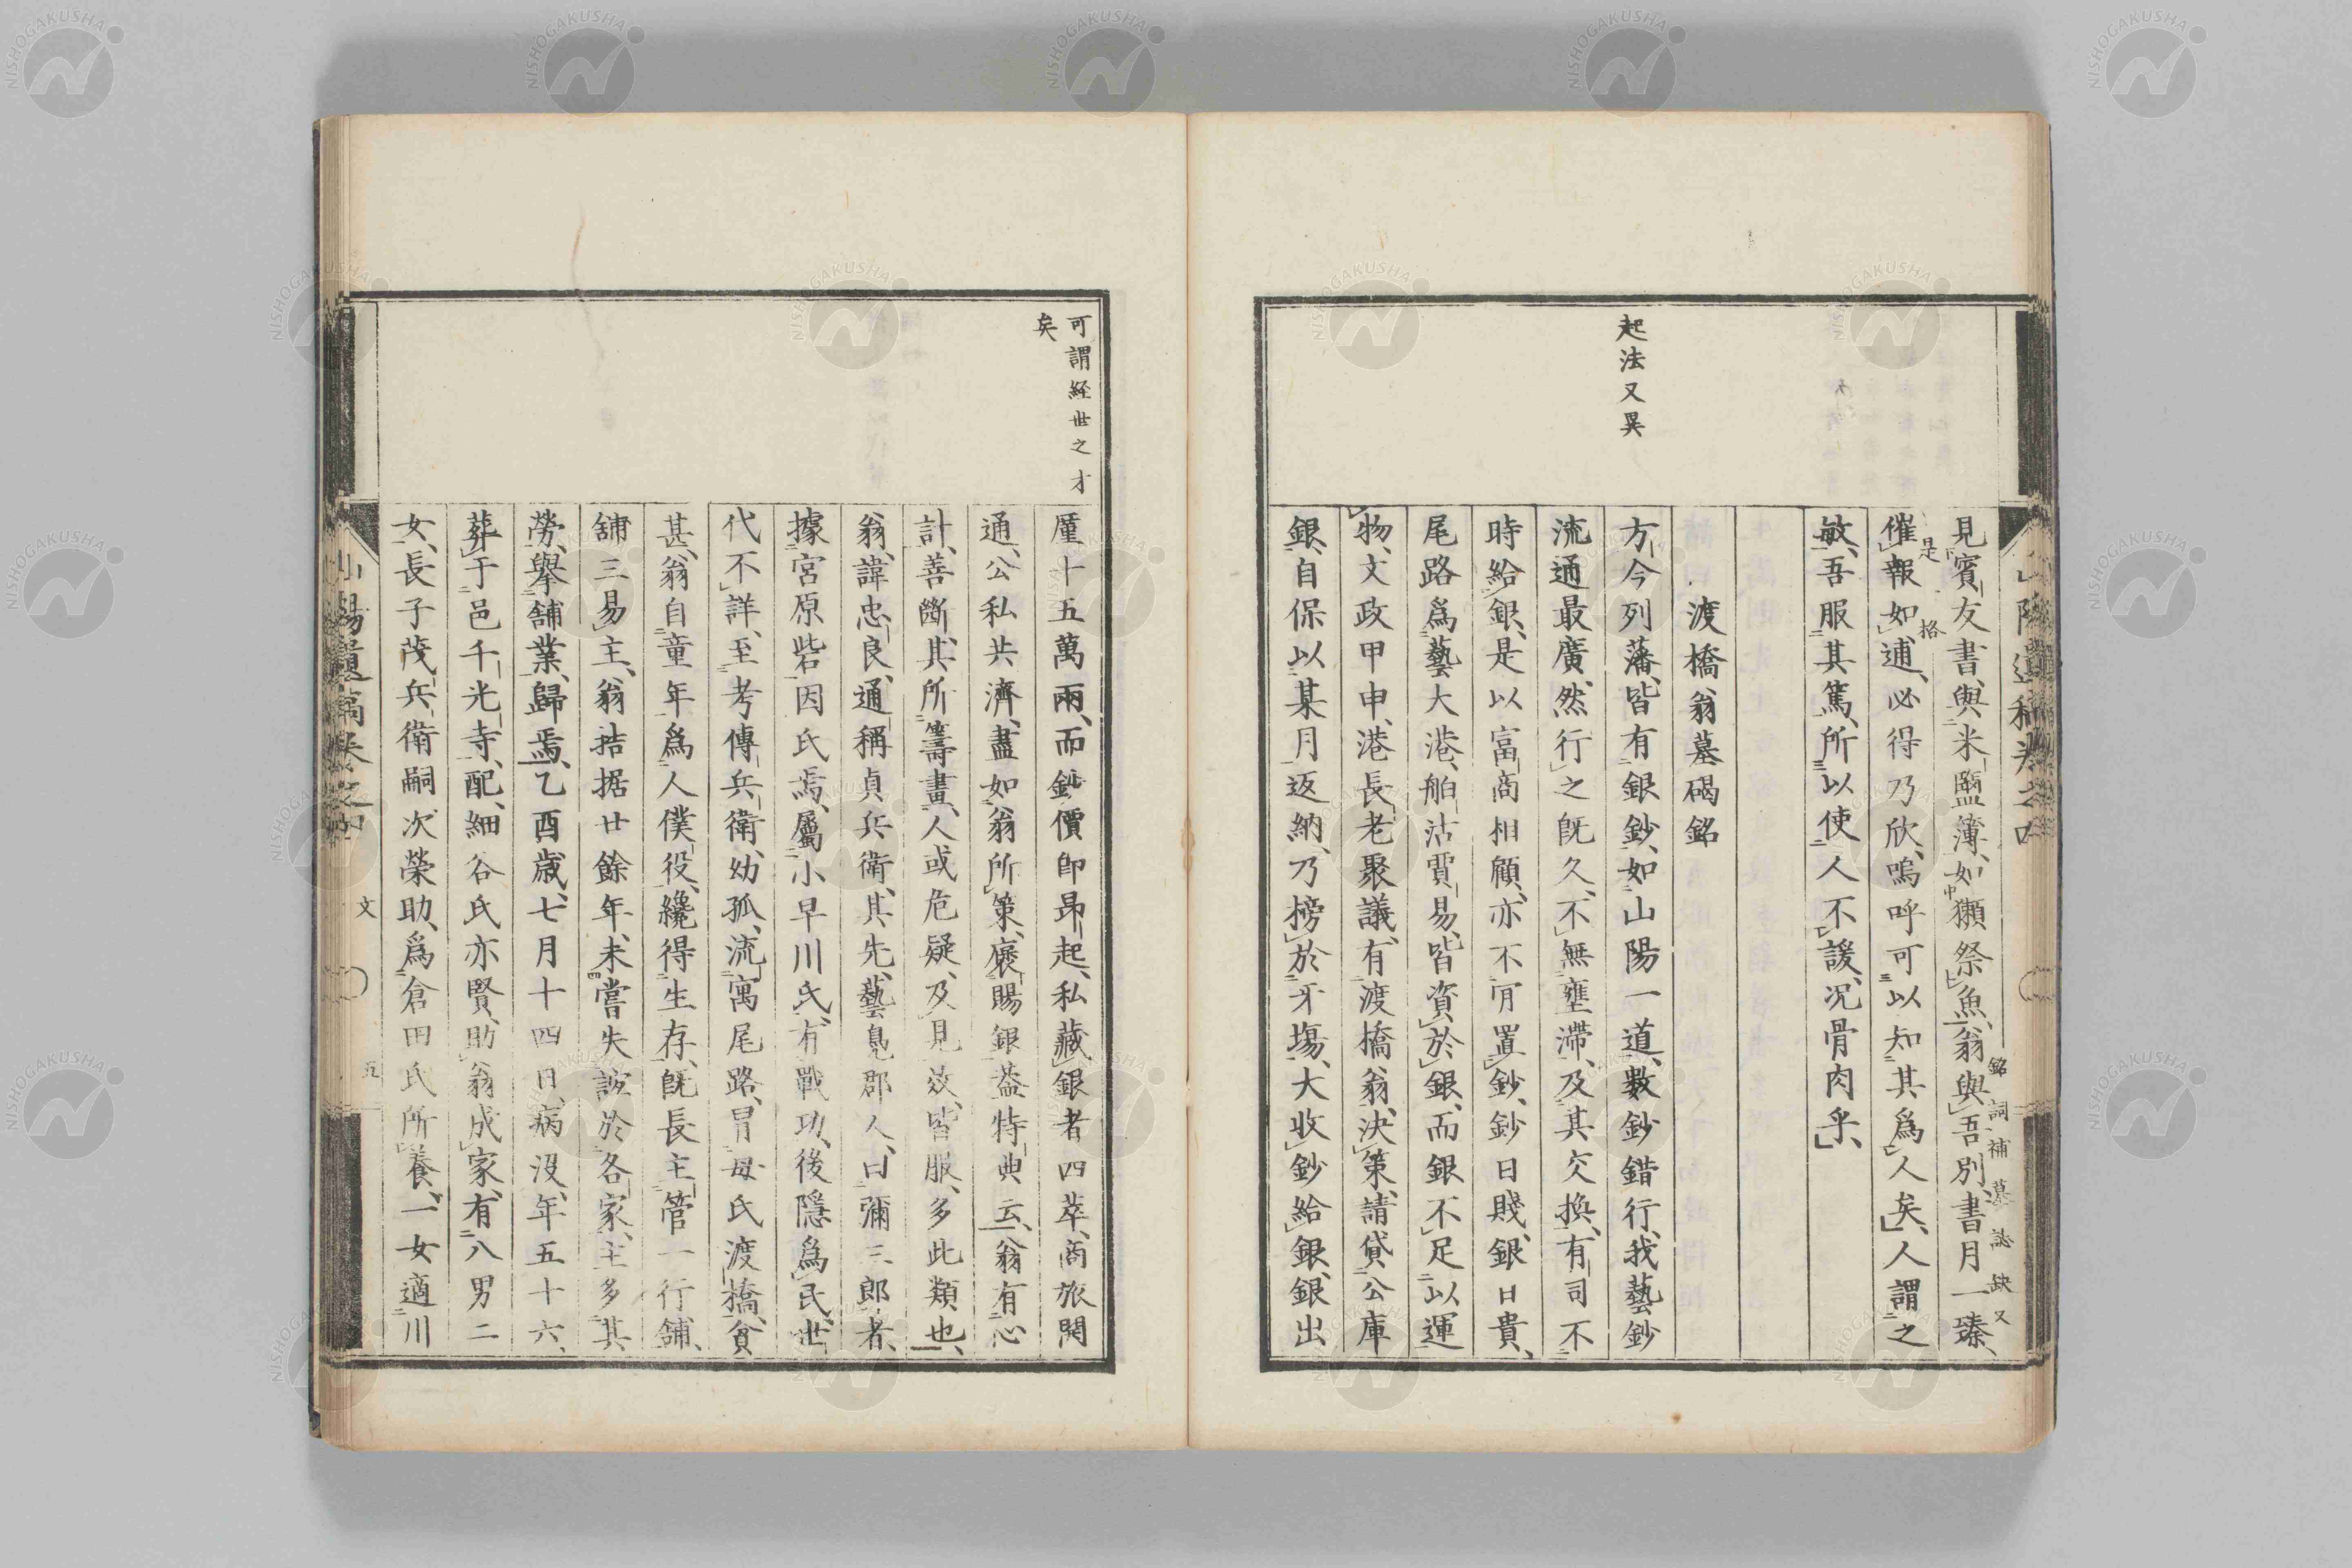 見賓友書、與米鹽簿、如獺祭魚、翁與吾別、書月一臻、
銘詞補墓誌缺又
是格
催報如逋、必得乃欣、嗚呼可以知其爲人矣、人謂之
敏、吾服其篤、所以使人不諼、况骨肉乎、
渡橋翁墓碣銘
起法又異
方今列藩、皆有銀鈔、如山陽一道、數鈔錯行、我藝鈔
流通最廣、然行之既久、不無壅滯、及其交換、有司不
時給銀、是以富商相顧、亦不肎置鈔、鈔日賤、銀日貴、
尾路爲藝大港、舶沽賈易、皆資於銀、而銀不足以運
物、文政甲申、港長老聚議、有渡橋翁、決策、請貸公庫
銀、自保以某月返納、乃榜於牙塲、大收鈔給銀、銀出
可謂経世之才
矣
厪十五萬兩、而鈔價卽昂起、私藏銀者四萃、商旅開
通、公私共濟、盡如翁所策、襃賜銀、葢特典云、翁有心
計、善斷、其所籌畫、人或危疑、及見效、皆服、多此類也、
翁、諱忠良、通稱貞兵衛、其先、藝豊郡人、曰彌三郎者、
據宮原砦因氏焉、屬小早川氏、有戰功、後隱爲民、世
代不詳、至考傳兵衛、幼孤、流寓尾路、冐母氏渡橋、貧
甚、翁自童年爲人僕役、纔得生存、既長主管一行舖、
舖三易主、翁拮据廿餘年、未嘗失誼於各家、主多其
勞、擧舖業、歸焉、乙酉歳、七月十四日、病沒、年五十六、
葬于邑千光寺、配、細谷氏亦賢、助翁成家、有八男二
女、長子茂兵衛嗣次榮助、爲倉田氏所養、一女適川
山陽遺稿卷之四
文
五